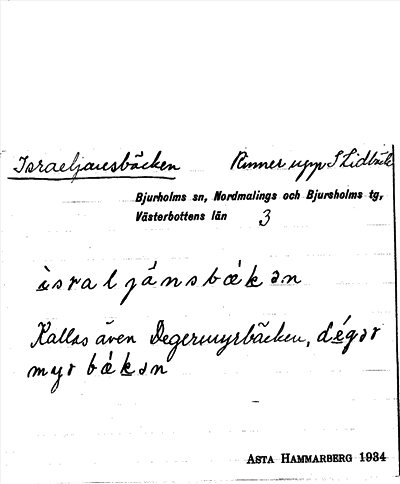 Israeljansbäcken Rinner upp S Lidträsk
Bjurholms sn, Nordmalings och Bjursholms tg,
Västerbottens län 3
ìsraljánsbǽkən
Kallas även Degermyrbäcken, dégər
myrbǽkən
ASTA HAMMARBERG 1934